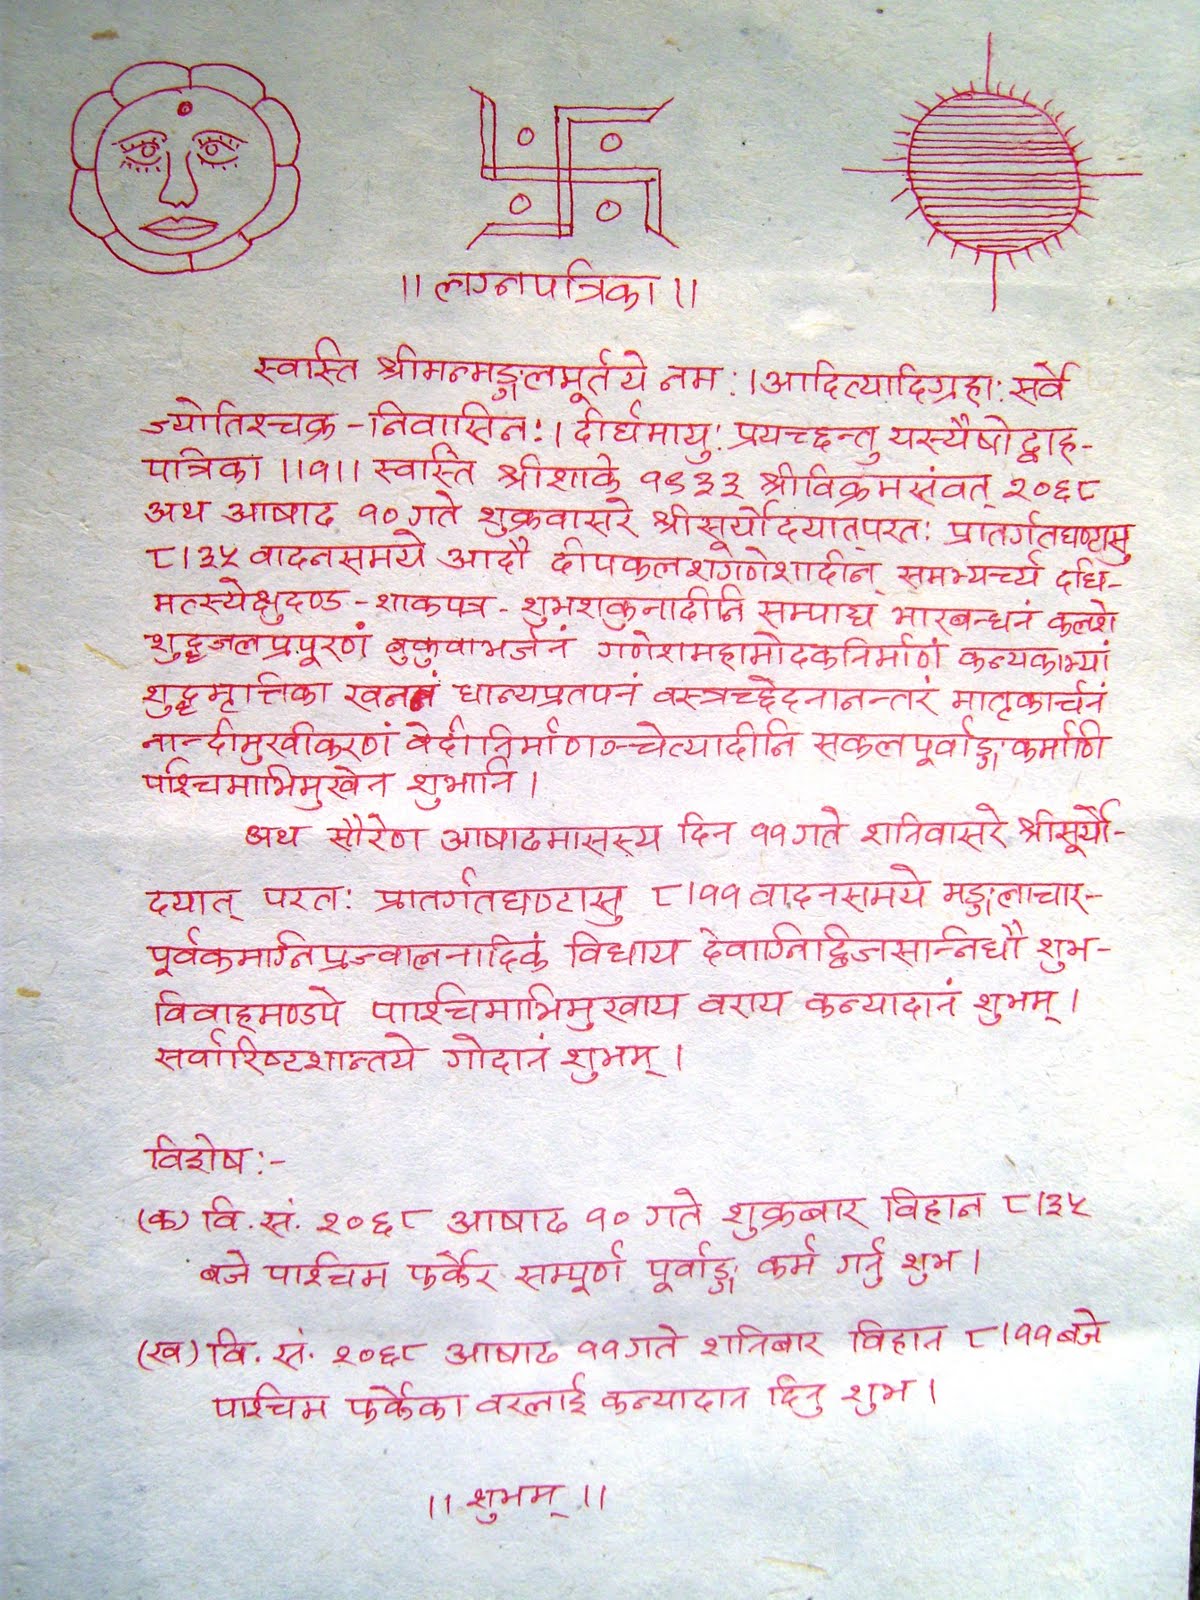 ।। लग्नपत्रिका ।।
स्वस्ति श्रीमन्मङ्गलमूर्तये नमः । आदित्यादिग्रहाः सर्वे
ज्योतिश्चक्र-निवासिनः । दीर्घमायुः प्रयच्छन्तु यस्यैषोद्वाह-
पत्रिका ।।१।। स्वस्ति श्रीशाके १९३३ श्रीविक्रमसंवत् २०६८
अथ आषाढ १० गते शुक्रवासरे श्रीसूर्योदयात्परतः प्रातर्गतघण्टासु
८।३५ वादनसमये आदौ दीपकलशगणेशादीन् समभ्यर्च्य दधि-
मत्स्येक्षुदण्ड-शाकपत्र-शुभशकुनादीनि सम्पाद्य भारबन्धनं कलशे
शुद्धजलप्रपूरणं बुकुवाभर्जनं गणेशमहामोदकनिर्माणं कन्यकाभ्यां
शुद्धमृत्तिका खननं धान्यप्रतपनं वस्त्रच्छेदनानन्तरं मातृकार्चनं
नान्दीमुखीकरणं वेदीनिर्माणञ्चेत्यादीनि सकलपूर्वाङ्ग कर्माणि
पश्चिमाभिमुखेन शुभानि ।
अथ सौरेण आषाढमासस्य दिन ११ गते शनिवासरे श्रीसूर्यो-
दयात् परतः प्रातर्गतघण्टासु ८।११ वादनसमये मङ्गलाचार-
पूर्वकमग्निप्रज्वालनादिकं विधाय देवाग्निद्विजसन्निधौ शुभ-
विवाहमण्डपे पश्चिमाभिमुखाय वराय कन्यादानं शुभम् ।
सर्वारिष्टशान्तये गोदानं शुभम् ।
विशेष :-
(क) वि. सं. २०६८ आषाढ १० गते शुक्रबार विहान ८।३५
बजे पश्चिम फर्केर सम्पूर्ण पूर्वाङ्ग कर्म गर्नु शुभ ।
(ख) वि. सं. २०६८ आषाढ ११ गते शनिबार विहान ८।११ बजे
पश्चिम फर्केका वरलाई कन्यादान दिनु शुभ ।
।। शुभम् ।।